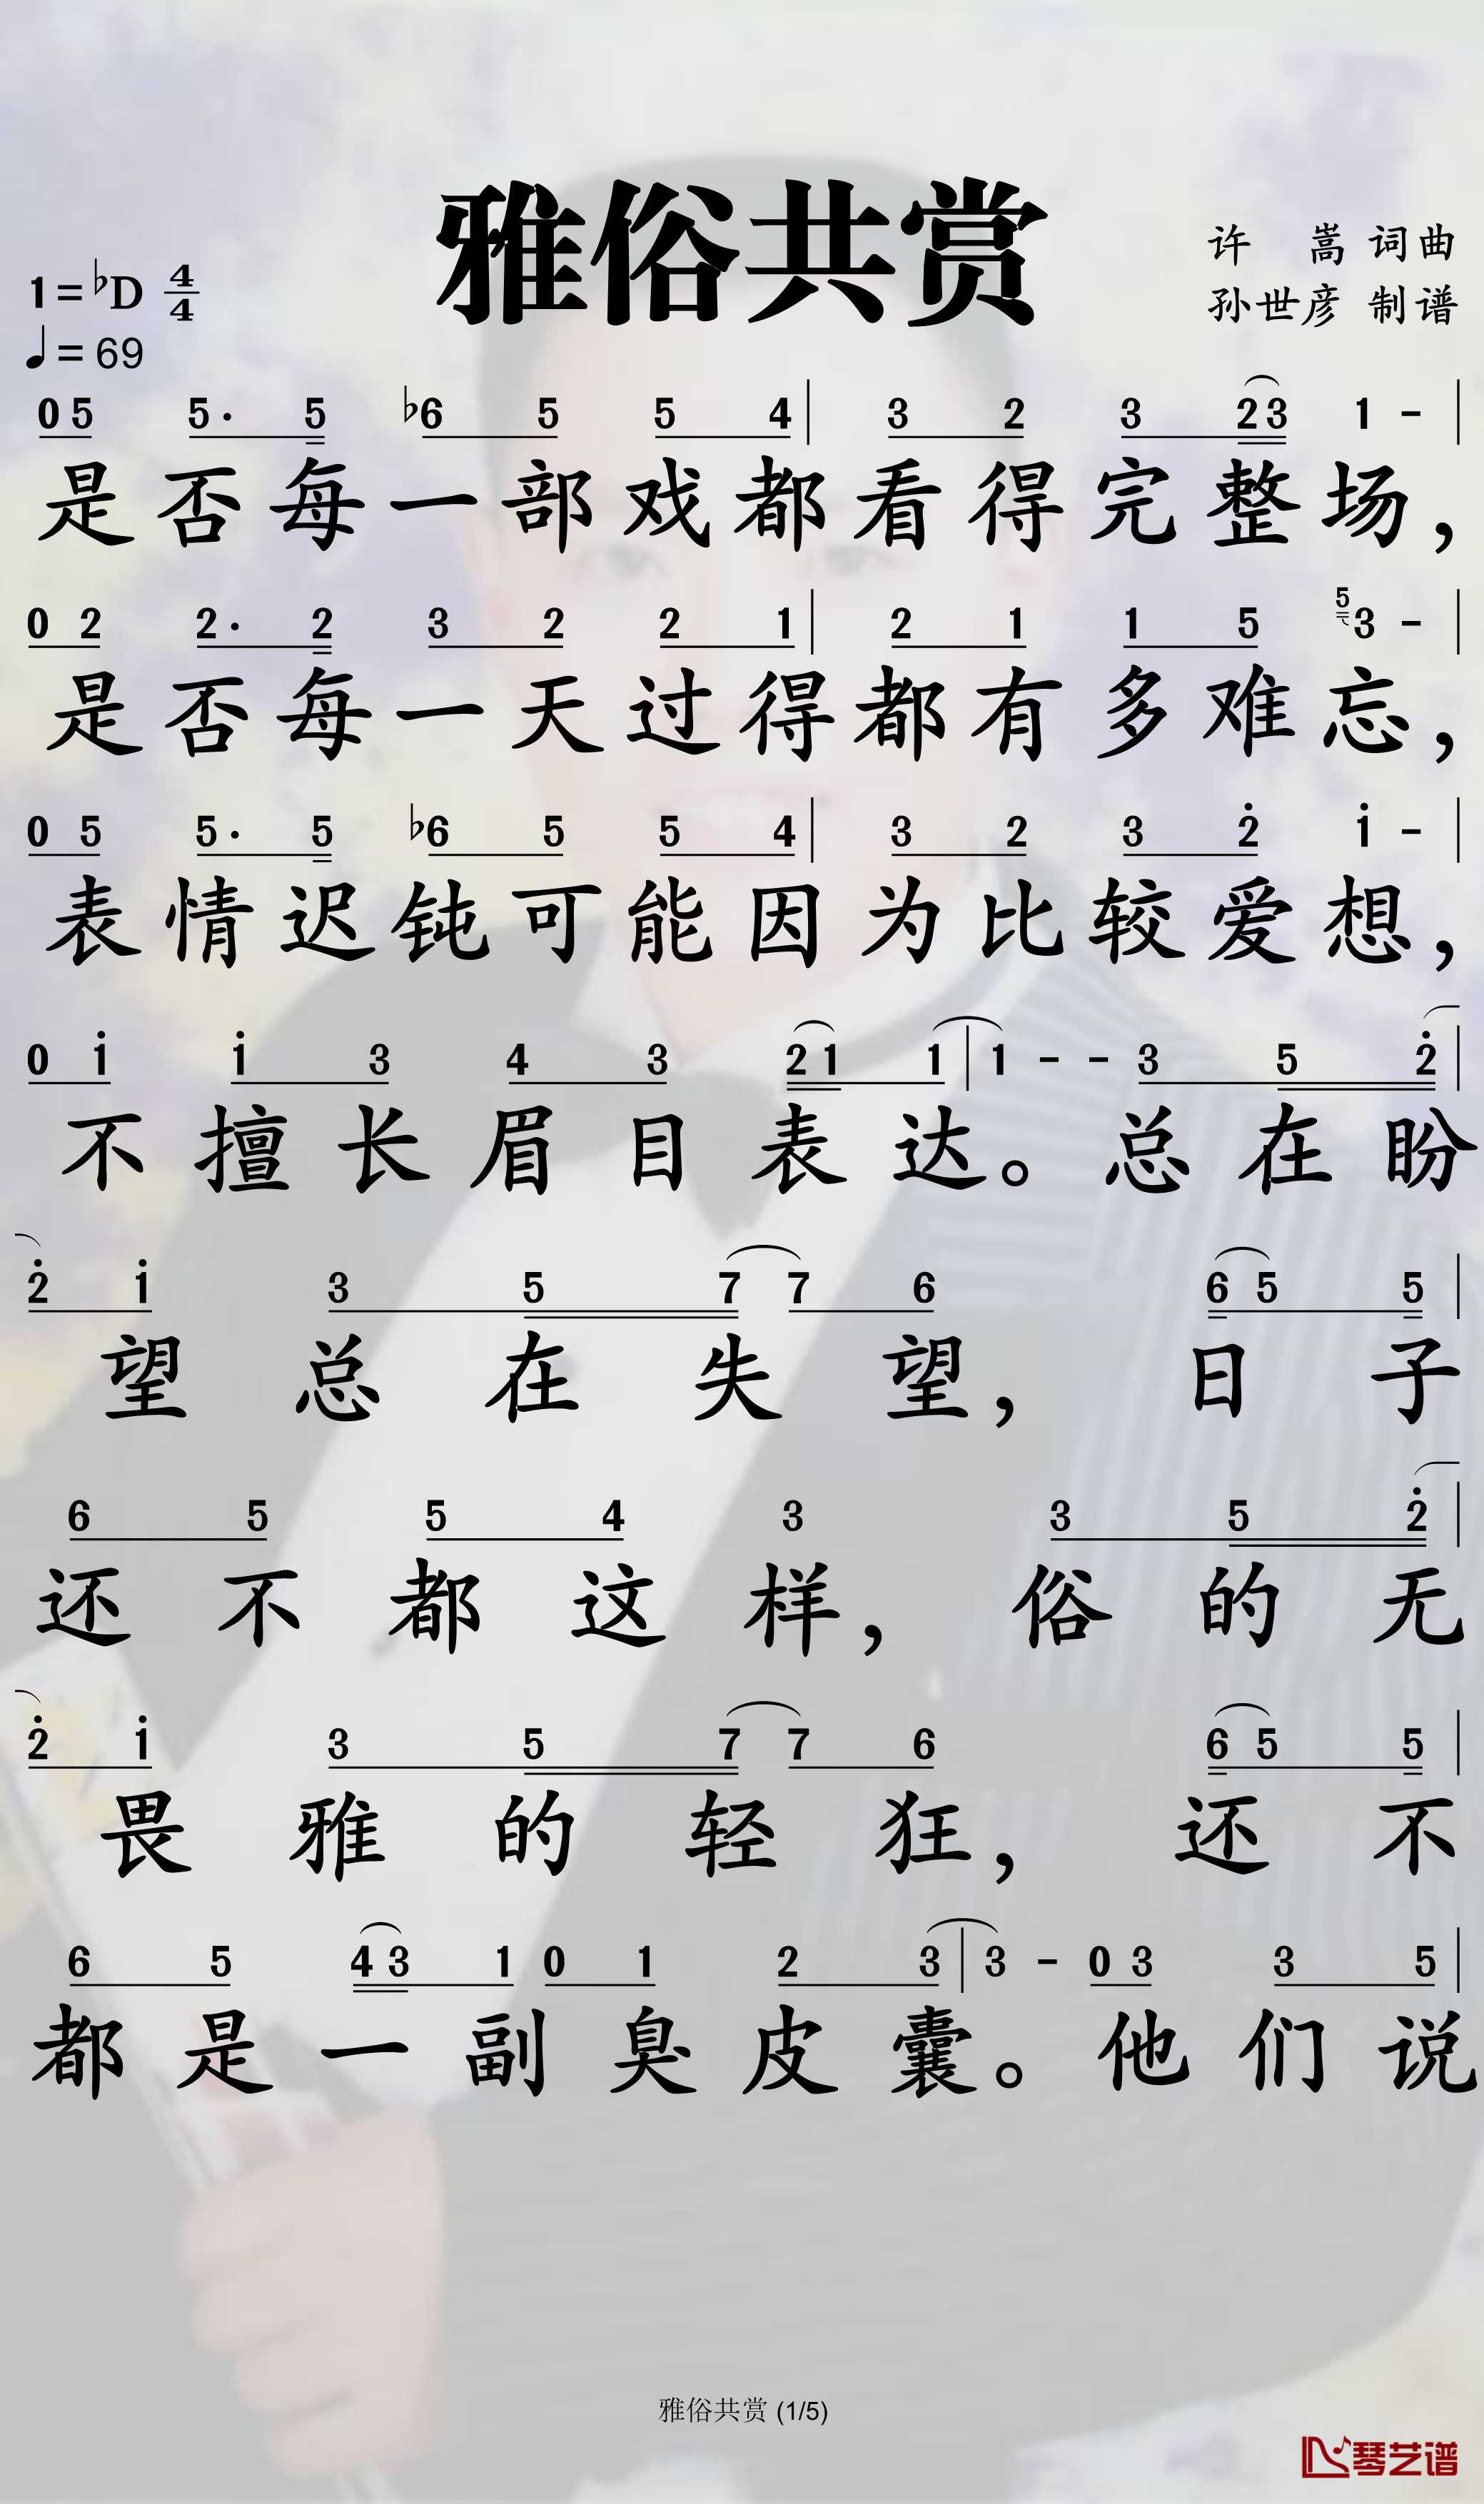 雅俗共赏
许 嵩 词曲
孙世彦 制谱
1=♭D 4/4
♩=69
05 5· 5 ♭6 5 5 4 | 3 2 3 23 1 - |
是否每一部戏都看得完整场，
0 2 2· 2 3 2 2 1 | 2 1 1 5 5 3 - |
是否每一天过得都有多难忘，
0 5 5· 5 ♭6 5 5 4 | 3 2 3 2̇ 1̇ - |
表情迟钝可能因为比较爱想，
0 1̇ 1̇ 3 4 3 21 1 | 1 - - 3 5 2̇ |
不擅长眉目表达。总在盼
2̇ 1̇ 3 5 7 7 6 6 5 5 |
望总在失望，日子
6 5 5 4 3 3 5 2̇ |
还不都这样，俗的无
2̇ 1̇ 3 5 7 7 6 6 5 5 |
畏雅的轻狂，还不
6 5 43 1 0 1 2 3 | 3 - 0 3 3 5 |
都是一副臭皮囊。他们说
雅俗共赏 (1/5)
琴艺谱